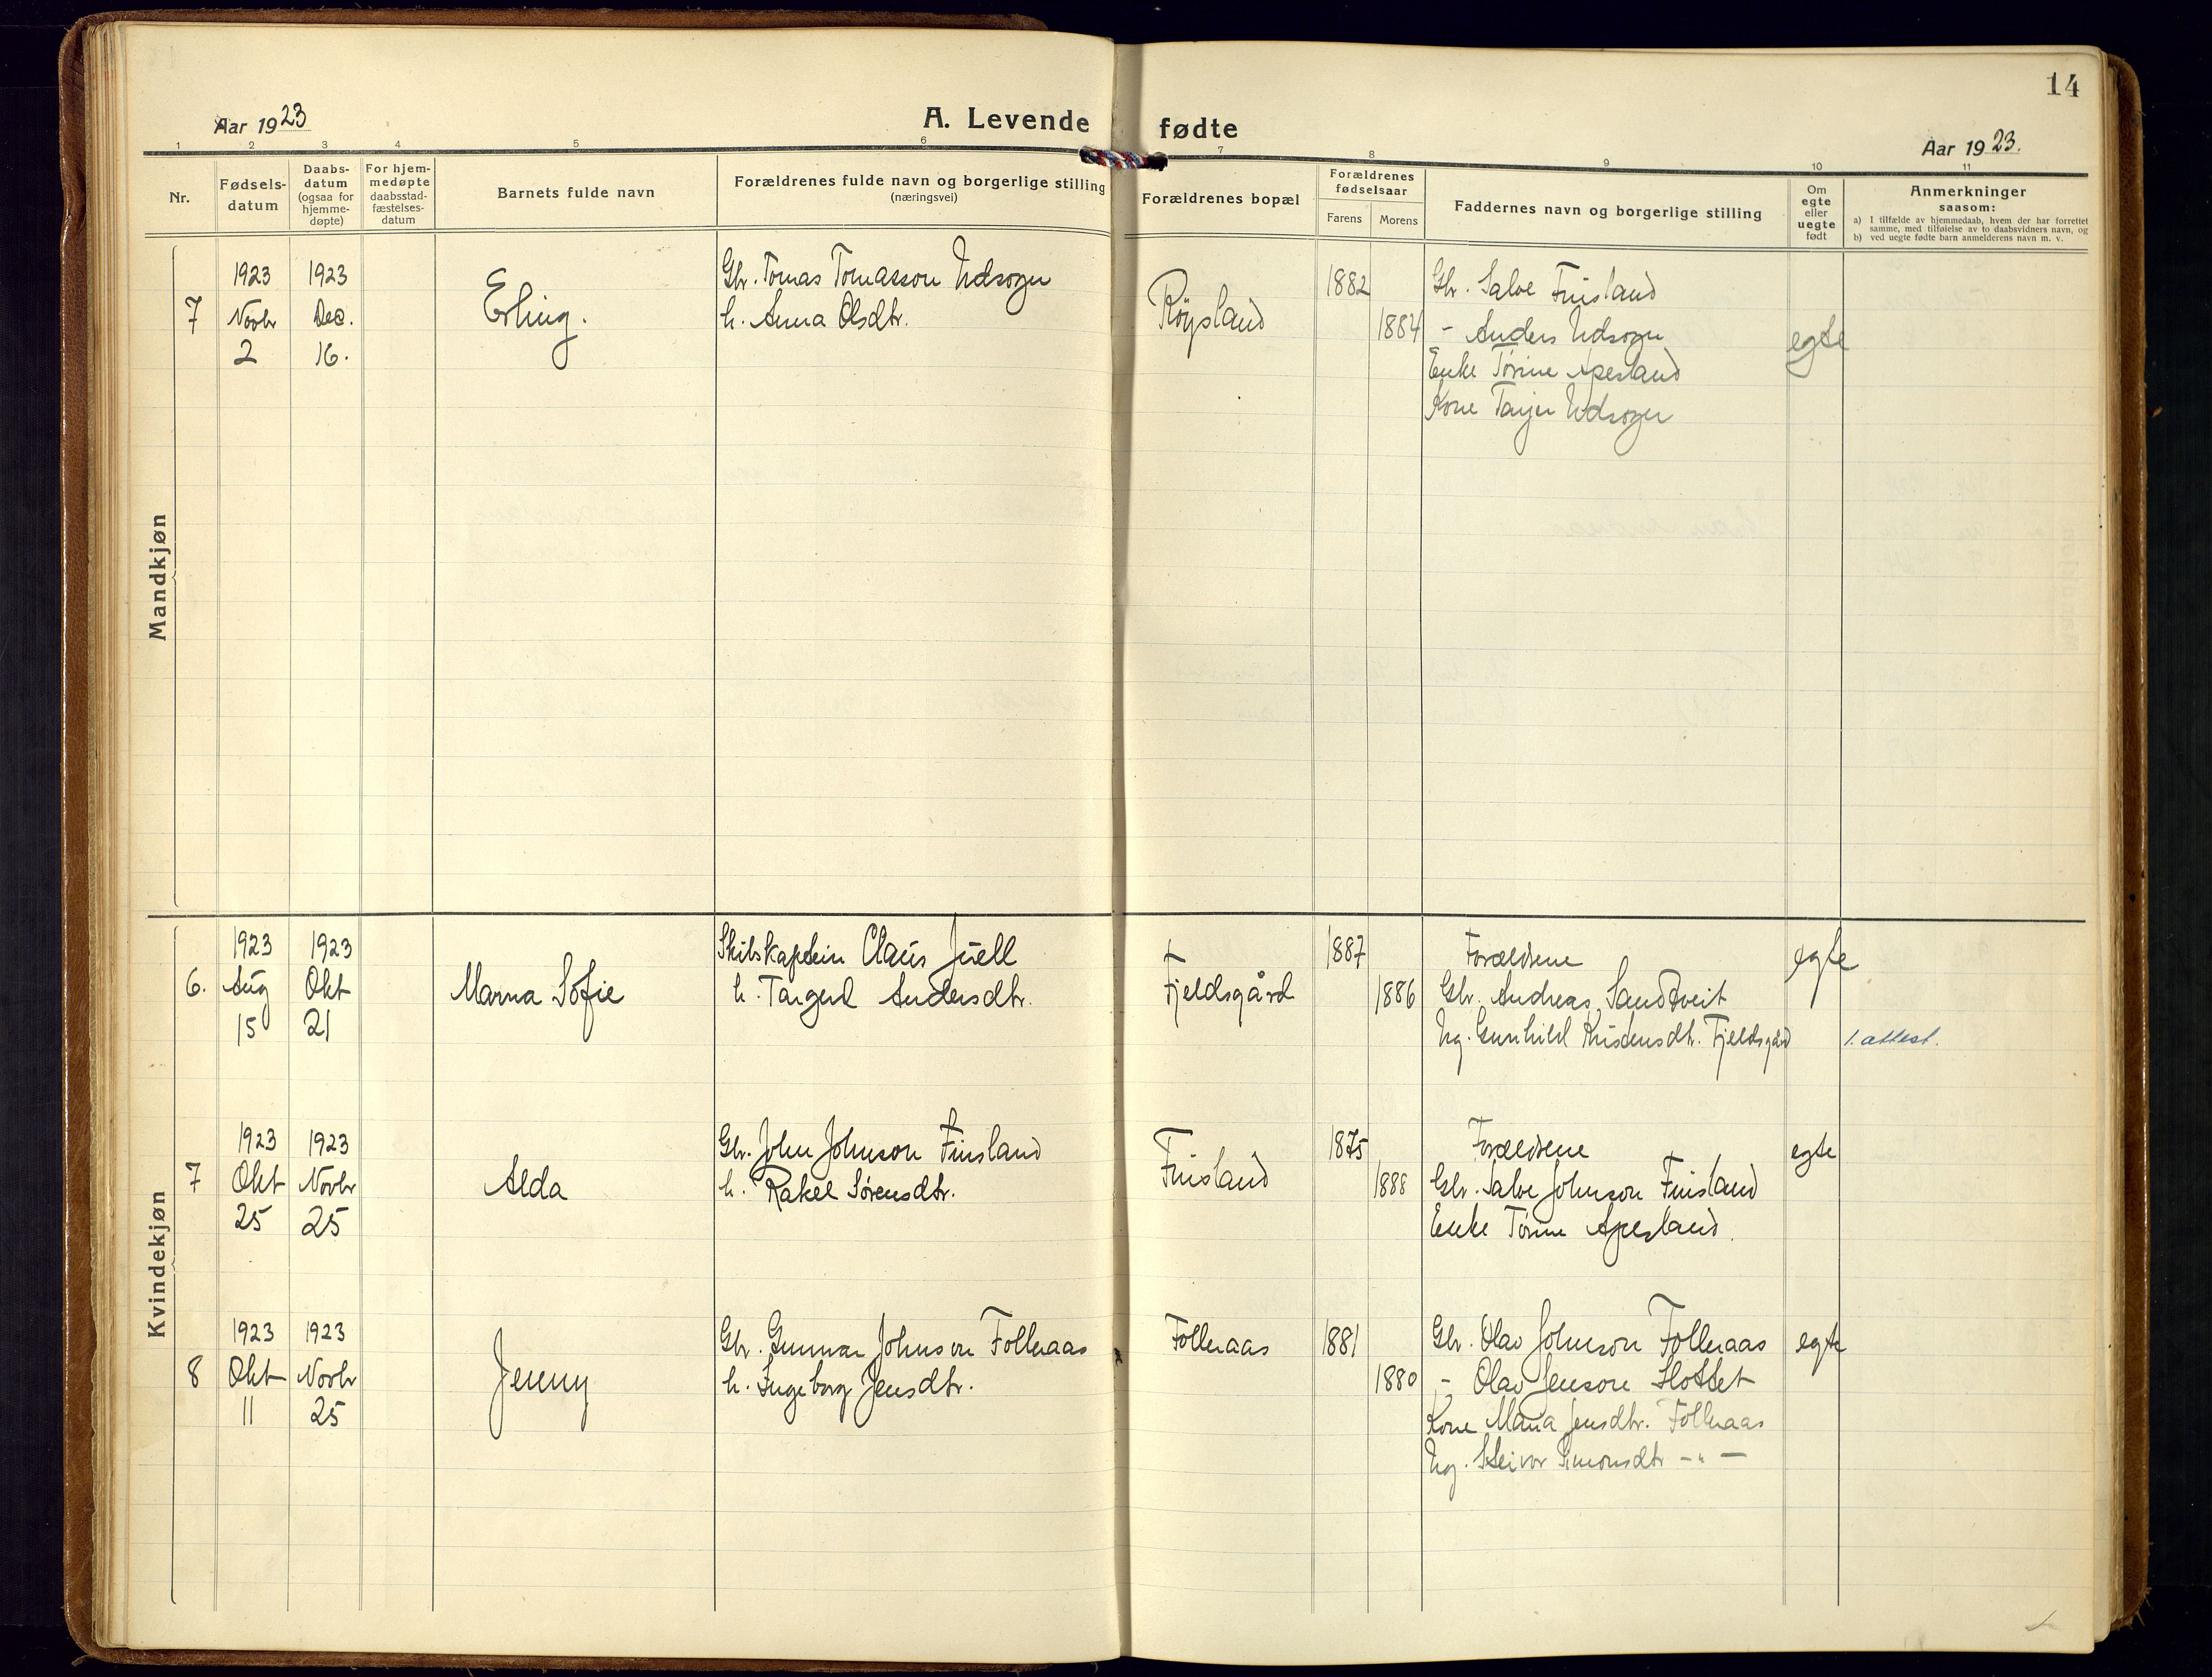 14
Aar 1923
A. Levende fødte
Aar 1923.
1 2 3 4 5 6 7 8 9 10 11
Nr.
Fødsels-
datum
Daabs-
datum
(ogsaa for
hjemme-
døpte)
For hjem-
medøpte
daabsstad-
fæstelses-
datum
Barnets fulde navn
Forældrenes fulde navn og borgerlige stilling
(næringsvei)
Forældrenes bopæl
Forældrenes
fødselsaar
Farens Morens
Faddernes navn og borgerlige stilling
Om
egte
eller
uegte
født
Anmerkninger
saasom:
a) I tilfælde av hjemmedaab, hvem der har forrettet
samme, med tilføielse av to daabsvidners navn, og
b) ved uegte fødte barn anmelderens navn m. v.
Mandkjøn
7
1923
Novbr
2
1923
Dec.
16.
Erling.
Gbr. Tomas Tomasson Udsogn
h. Anna Olsdtr.
Røysland
1882
1884
Gbr. Salve Finsland
- Anders Udsogn
Enke Tørine Apesland
Kone Tarjer Udsogn
egte
Kvindekjøn
6.
1923
Aug
15
1923
Okt
21
Marna Sofie
Skibskaptein Claus Juell
h. Targerd Andersdtr.
Fjeldsgård
1887
1886
Forældrene
Gbr. Andreas Sandtveit
Ug. Gunhild Kristensdtr. Fjeldsgård
egte
1. attest.
7
1923
Okt
25
1923
Novbr
25
Alda
Gbr. John Johnson Finsland
h. Rakel Sørensdtr.
Finsland
1875
1888
Forældrene
Gbr. Salve Johnson Finsland
Enke Tørine Apesland.
egte
8
1923
Okt
11
1923
Novbr
25
Jenny
Gbr. Gunnar Johnson Folleraas
h. Ingeborg Jensdtr.
Folleraas
1881
1880
Gbr. Olav Johnson Folleraas
- Olav Jenson Slottet
Kone Maria Jensdtr. Folleraas
Ug. Steivor Simonsdtr — " —
egte